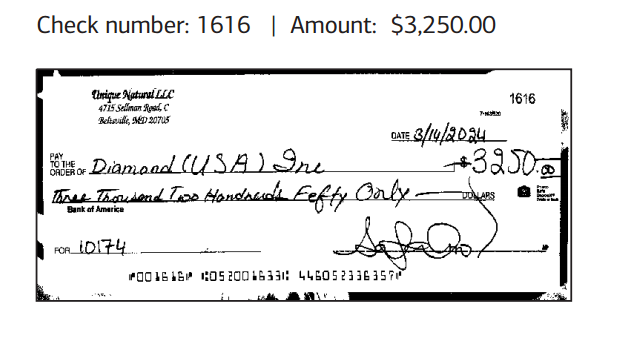 Check number: 1616 | Amount: $3,250.00
Unique Natural LLC
4715 Sellman Road, C
Beltsville, MD 20705
1616
DATE 3/14/2024
PAY TO THE ORDER OF Diamond (USA) Inc $3250.00
Three Thousand Two Handreds Fefty Only DOLLARS
Bank of America
FOR 10174